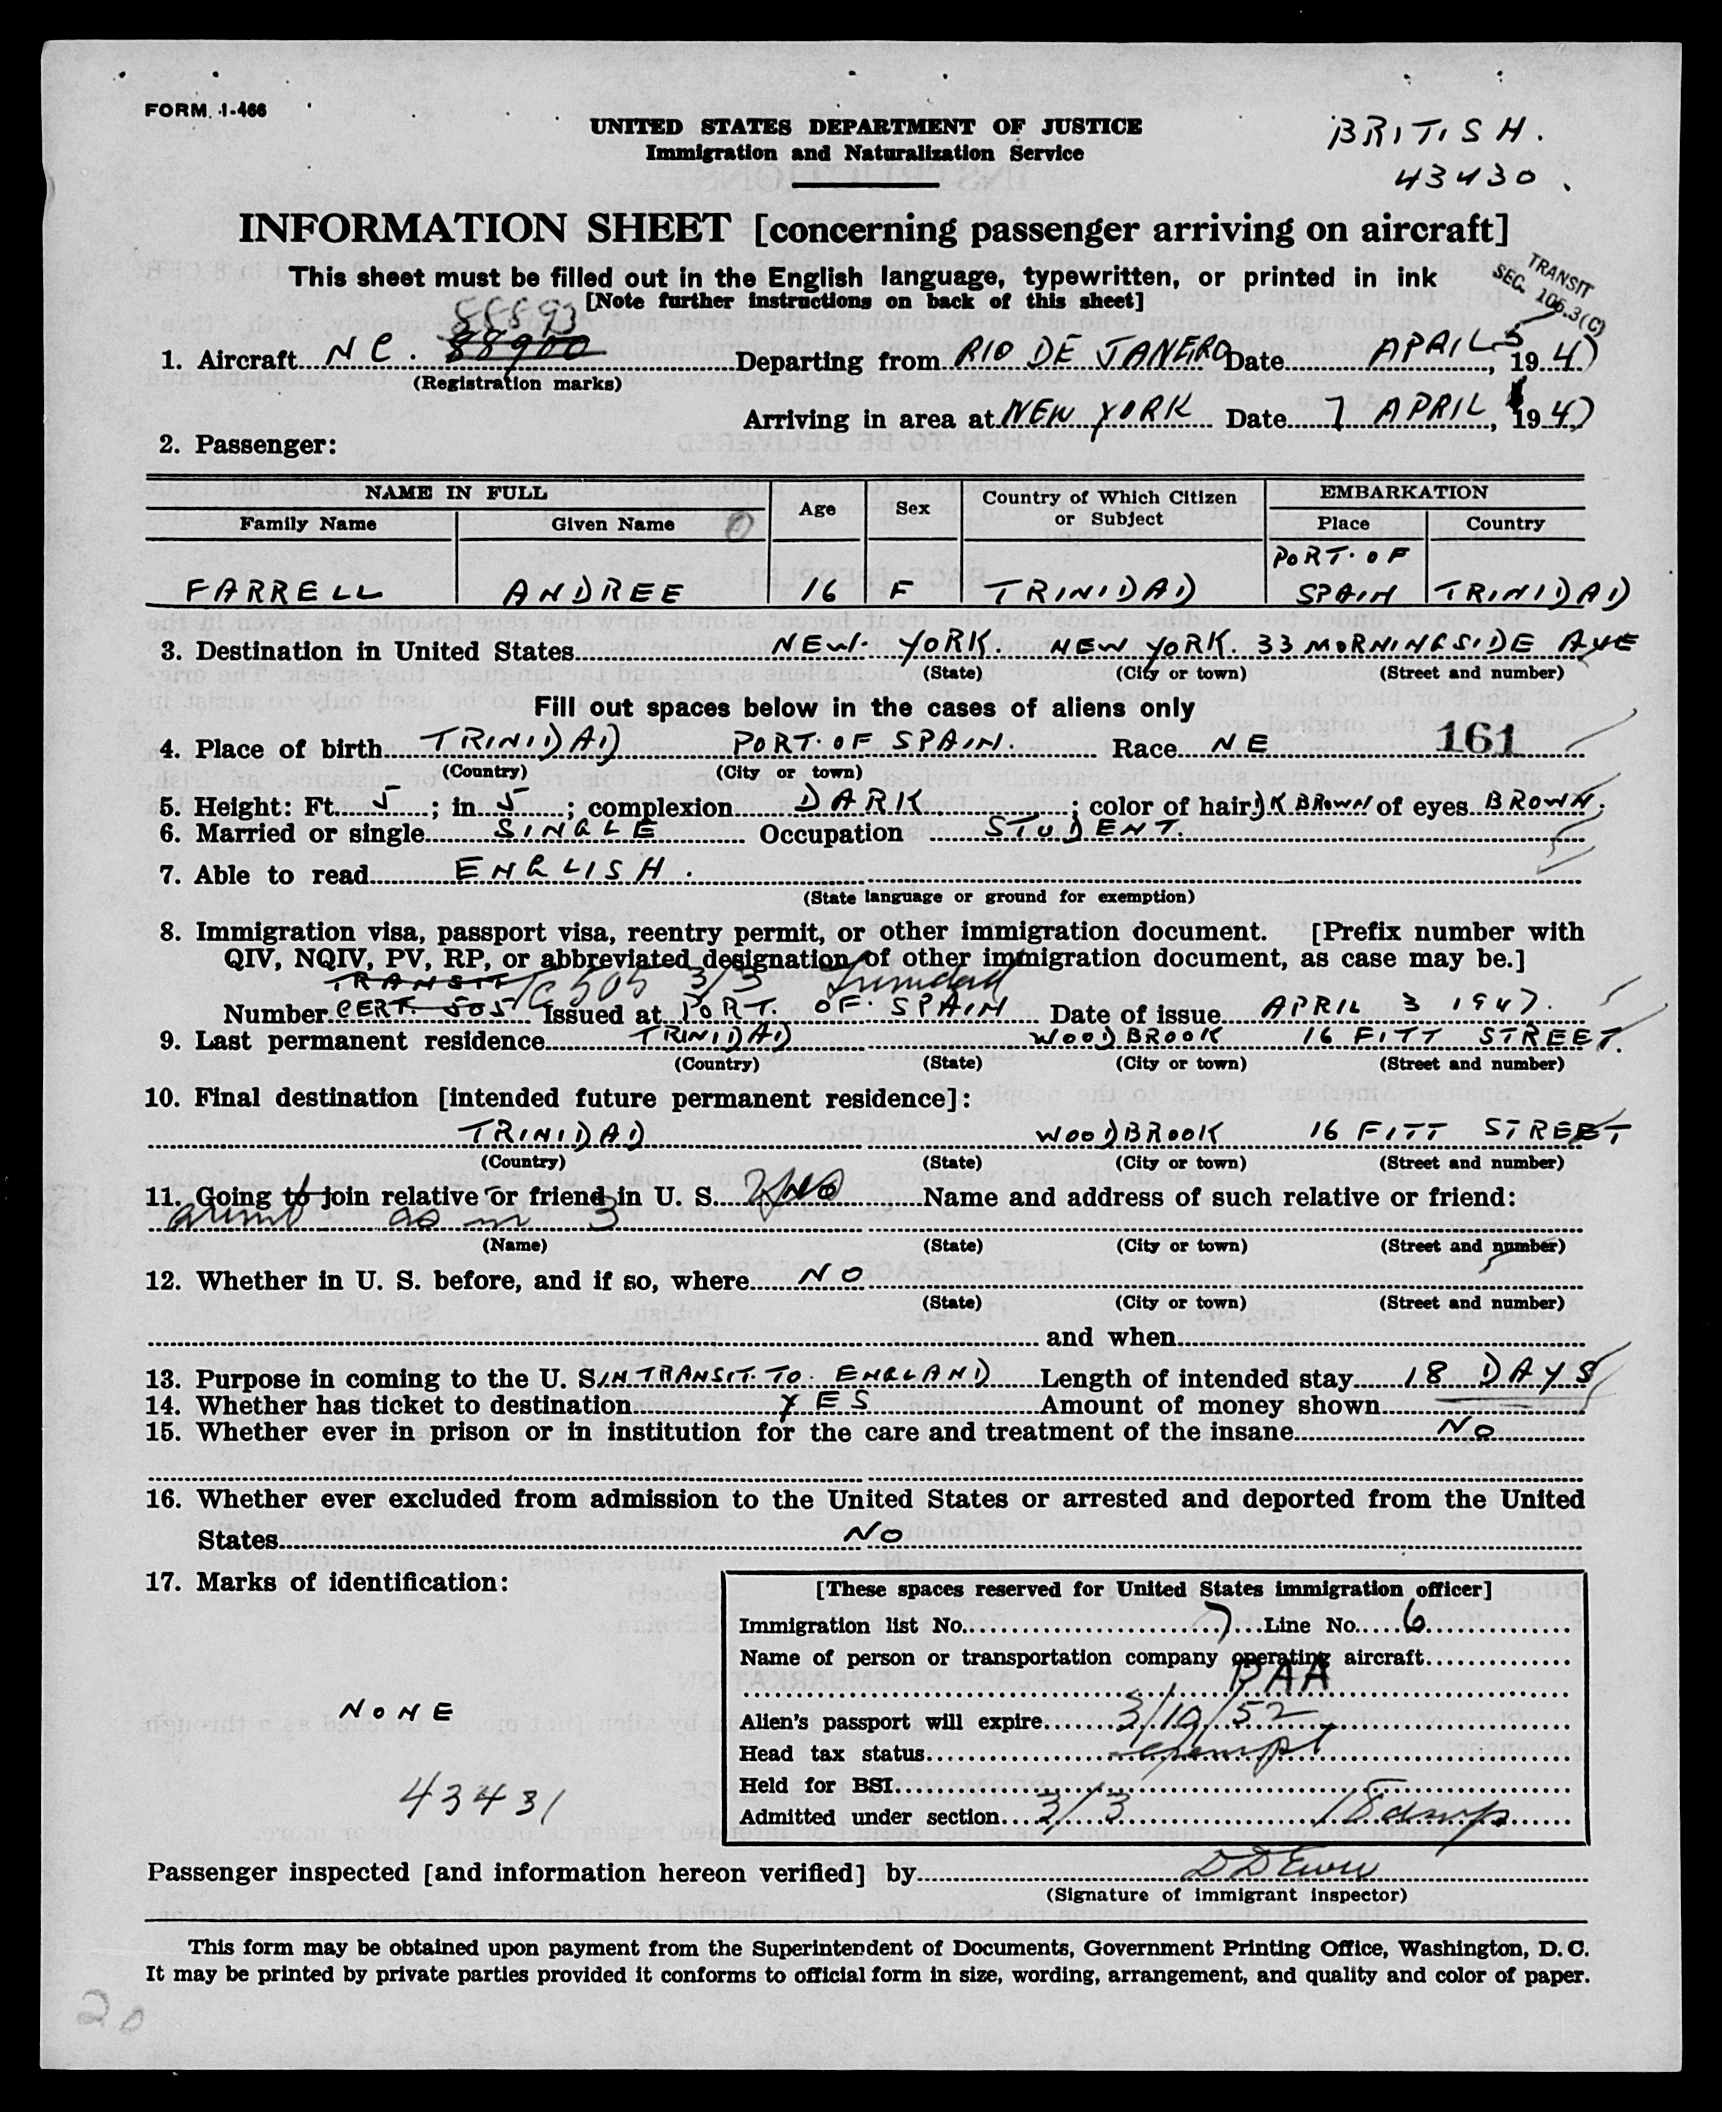 FORM I-466
UNITED STATES DEPARTMENT OF JUSTICE
Immigration and Naturalization Service
BRITISH.
43430.
INFORMATION SHEET [concerning passenger arriving on aircraft]
This sheet must be filled out in the English language, typewritten, or printed in ink
[Note further instructions on back of this sheet]
TRANSIT
SEC. 105.3(C)
88893
1. Aircraft NC. 88900 Departing from RIO DE JANEIRO Date APRIL 5, 1947
(Registration marks)
Arriving in area at NEW YORK Date 7 APRIL, 1947
2. Passenger:
NAME IN FULL Age Sex Country of Which Citizen or Subject EMBARKATION
Family Name Given Name Place Country
FARRELL ANDREE 16 F TRINIDAD PORT. OF SPAIN TRINIDAD
3. Destination in United States NEW. YORK. NEW YORK. 33 MORNINGSIDE AVE
(State) (City or town) (Street and number)
Fill out spaces below in the cases of aliens only
4. Place of birth TRINIDAD PORT. OF SPAIN. Race NE 161
(Country) (City or town)
5. Height: Ft. 5; in. 5; complexion DARK; color of hair DK BROWN of eyes BROWN.
6. Married or single SINGLE Occupation STUDENT.
7. Able to read ENGLISH.
(State language or ground for exemption)
8. Immigration visa, passport visa, reentry permit, or other immigration document. [Prefix number with
QIV, NQIV, PV, RP, or abbreviated designation of other immigration document, as case may be.]
TRANSIT TC 505 3/3 Trinidad
Number CERT. 505 Issued at PORT. OF. SPAIN Date of issue APRIL 3 1947.
9. Last permanent residence TRINIDAD WOODBROOK 16 FITT STREET.
(Country) (State) (City or town) (Street and number)
10. Final destination [intended future permanent residence]:
TRINIDAD WOODBROOK 16 FITT STREET
(Country) (State) (City or town) (Street and number)
11. Going to join relative or friend in U. S. NO Name and address of such relative or friend:
aunt as in 3
(Name) (State) (City or town) (Street and number)
12. Whether in U. S. before, and if so, where NO
(State) (City or town) (Street and number)
and when
13. Purpose in coming to the U. S. IN TRANSIT. TO. ENGLAND Length of intended stay 18 DAYS
14. Whether has ticket to destination YES Amount of money shown
15. Whether ever in prison or in institution for the care and treatment of the insane NO
16. Whether ever excluded from admission to the United States or arrested and deported from the United
States NO
17. Marks of identification:
NONE
43431
[These spaces reserved for United States immigration officer]
Immigration list No. 7 Line No. 6
Name of person or transportation company operating aircraft
PAA
Alien's passport will expire 3/19/52
Head tax status exempt
Held for BSI
Admitted under section 3/3 18 days
Passenger inspected [and information hereon verified] by
(Signature of immigrant inspector)
This form may be obtained upon payment from the Superintendent of Documents, Government Printing Office, Washington, D. C.
It may be printed by private parties provided it conforms to official form in size, wording, arrangement, and quality and color of paper.
20